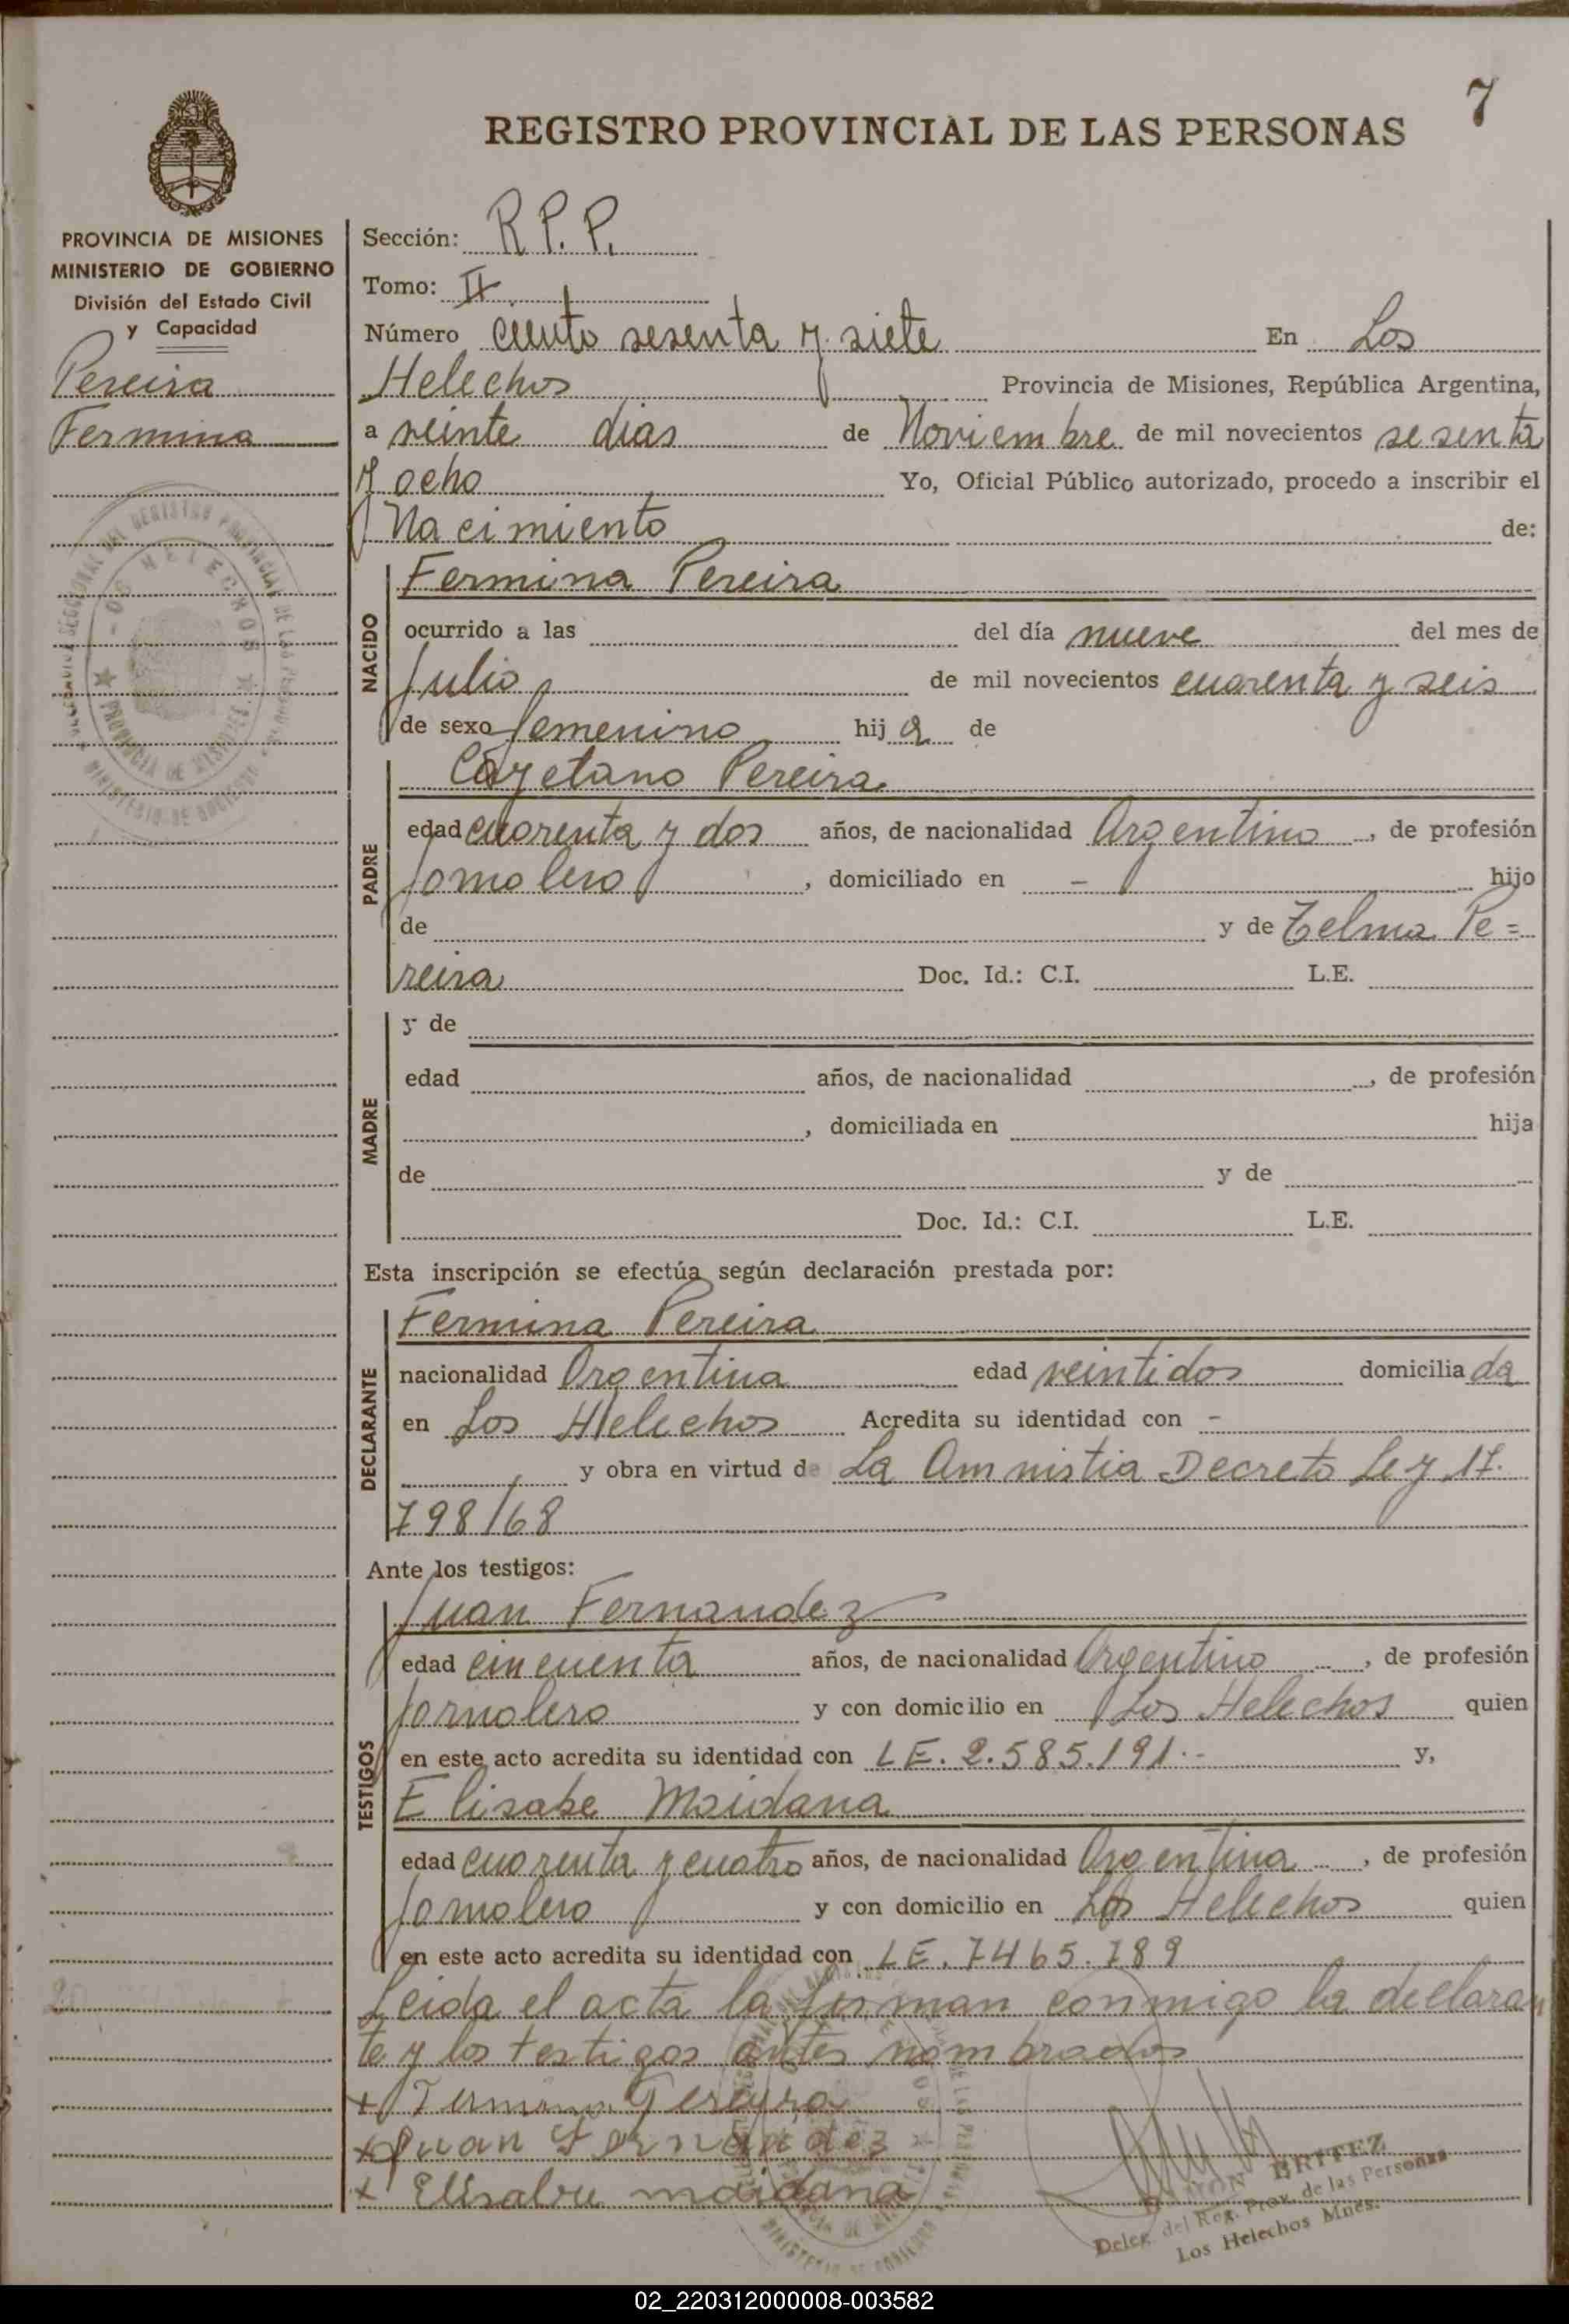 7
REGISTRO PROVINCIAL DE LAS PERSONAS
PROVINCIA DE MISIONES
MINISTERIO DE GOBIERNO
División del Estado Civil
y Capacidad
Pereira
Fermina
Sección: R.P.P.
Tomo: II
Número ciento sesenta y siete En Los
Helechos Provincia de Misiones, República Argentina,
a veinte dias de Noviembre de mil novecientos sesenta
y ocho Yo, Oficial Público autorizado, procedo a inscribir el
Nacimiento de:
NACIDO
Fermina Pereira
ocurrido a las del día nueve del mes de
Julio de mil novecientos cuarenta y seis
de sexo femenino hij a de
PADRE
Cayetano Pereira
edad cuarenta y dos años, de nacionalidad Argentino, de profesión
Jornalero, domiciliado en - hijo
de y de Telma Pe=
reira Doc. Id.: C.I. L.E.
MADRE
y de
edad años, de nacionalidad , de profesión
, domiciliada en hija
de y de
Doc. Id.: C.I. L.E.
Esta inscripción se efectúa según declaración prestada por:
DECLARANTE
Fermina Pereira
nacionalidad Argentina edad veintidos domicilia da
en Los Helechos Acredita su identidad con -
y obra en virtud de La Amnistia Decreto Ley 17.
798/68
Ante los testigos:
TESTIGOS
Juan Fernandez
edad cincuenta años, de nacionalidad Argentino, de profesión
Jornalero y con domicilio en Los Helechos quien
en este acto acredita su identidad con LE. 2.585.191.- y,
Elisabe Maidana
edad cuarenta y cuatro años, de nacionalidad Argentina, de profesión
Jornalero y con domicilio en Los Helechos quien
en este acto acredita su identidad con LE. 7465.789
Leida el acta la firman conmigo la declaran
te y los testigos antes nombrados
+ Fermina Pereyra
+ Juan Fernandez
+ Elisabe maidana
RAMON BRITEZ
Deleg. del Reg. Prov. de las Personas
Los Helechos Mnes.
02_220312000008-003582